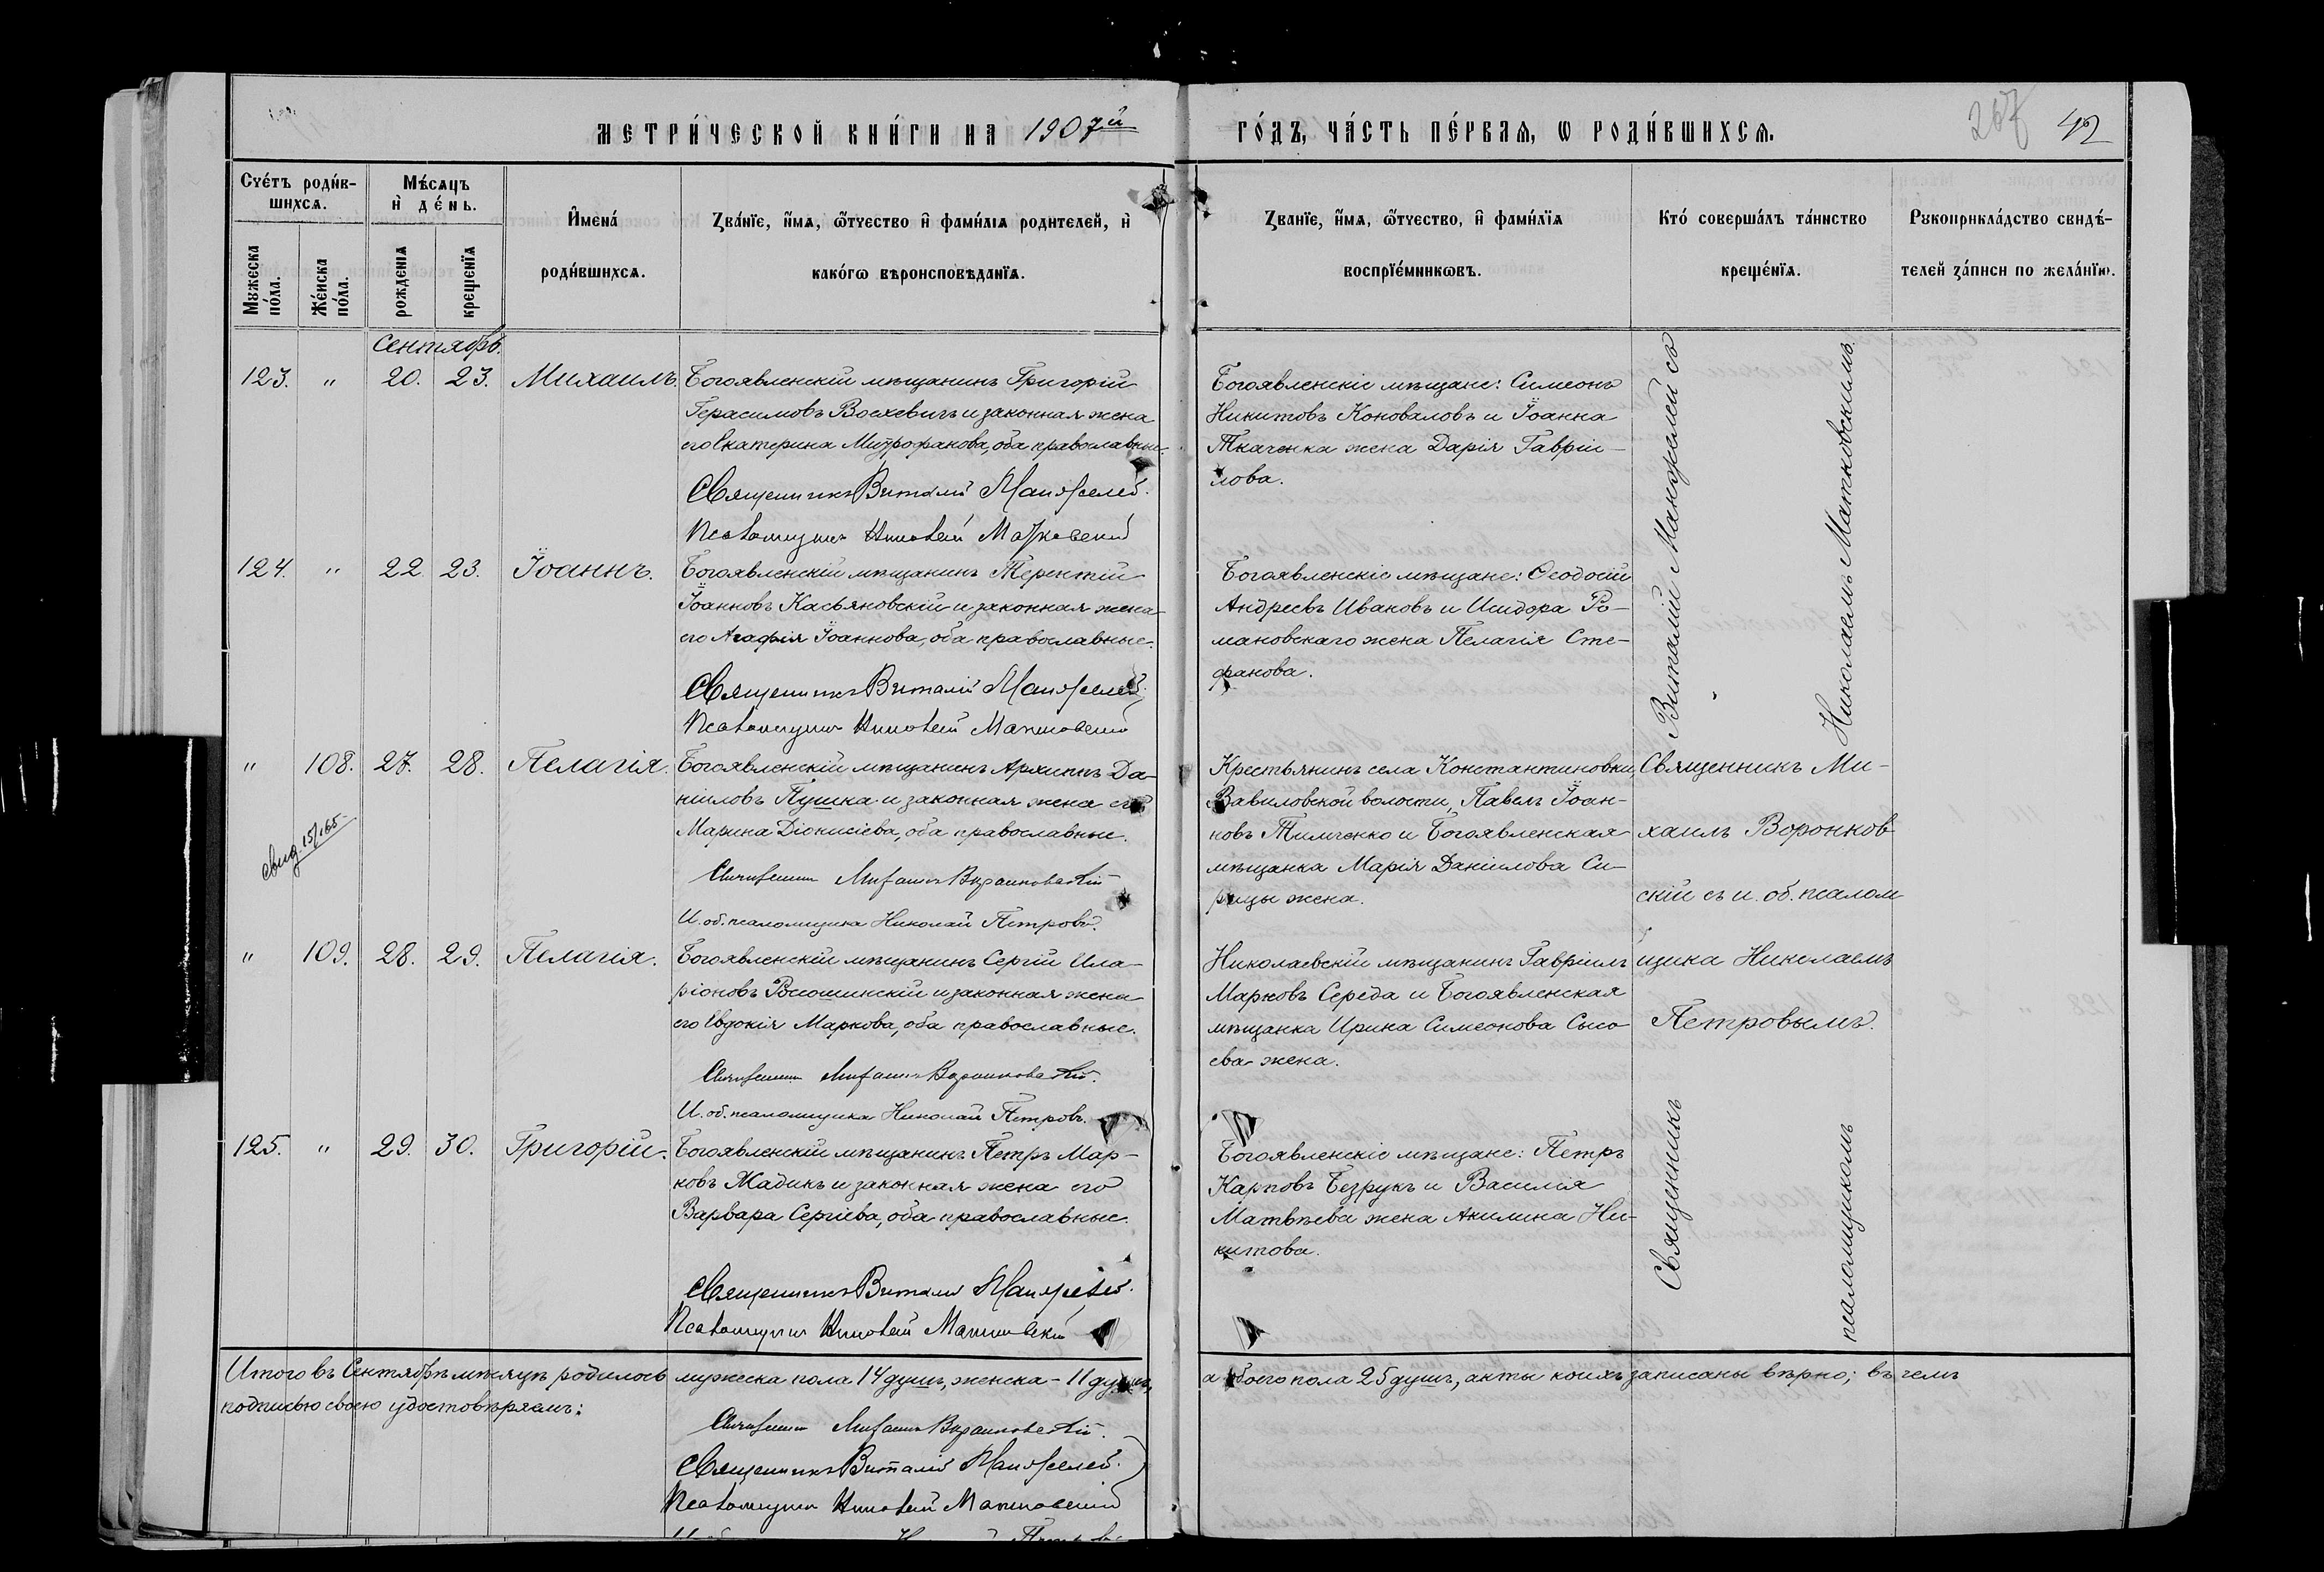 МЕТРИ́ЧЕСКОЙ КНИ́ГИ НА 1907й
ГО́ДЪ, ЧА́СТЬ ПЕ́РВАѦ, Ѡ РОДИ́ВШИХСѦ.
267 42
Сче́тъ роди́в-
шихсѧ.
Мꙋжеска по́ла.
Же́нска по́ла.
Мѣ́сѧцъ
и҆ де́нь.
рожденїѧ
крещенїѧ
И҆мена́
роди́вшихсѧ.
Зва́нїе, и҆́мѧ, ѻ҆́тчество и҆ фами́лїѧ родителей, и҆
како́гѡ вѣроисповѣданїѧ.
Зва́нїе, и҆́мѧ, ѻ҆́тчество, и҆ фами́лїѧ
воспрїе́мникѡвъ.
Кто́ соверша́лъ та́инство
креще́нїѧ.
Рꙋкоприкла́дство свидѣ́-
телей за́писи по жела́нїю.
Сентябрь.
123. " 20. 23. Михаилъ.
Богоявленскій мѣщанинъ Григорій
Герасимовъ и законная жена
его Екатерина Митрофанова, оба православные.
Священникъ Виталій Манжелей.
Псаломщикъ Николай Матковский
Богоявленскіе мѣщане: Симеонъ
Никитовъ Коноваловъ и Іоанна
Ткаченка жена Дарія Гавріи-
лова.
124. " 22 23. Іоаннъ.
Богоявленскій мѣщанинъ Терентій
Іоанновъ Касьяновскій и законная жена
его Агафія Іоаннова, оба православные.
Священникъ Виталій Манжелей.
Псаломщикъ Николай Матковский
Богоявленскіе мѣщане: Ѳеодосій
Андреевъ Ивановъ и Исидора Ро-
мановскаго жена Пелагія Сте-
фанова.
" 108. 27. 28. Пелагія.
свид. 15/165
Богоявленскій мѣщанинъ Архипъ Да-
ніиловъ Пушка и законная жена его
Марина Діонисіева, оба православные.
Священникъ Михаилъ Воронковскій
И. об. псаломщика Николай Петровъ.
Крестьянинъ села Константиновки,
Вавиловской волости, Павелъ Іоан-
новъ Тимченко и Богоявленская
мѣщанка Марія Даніилова Си-
рицы жена.
" 109. 28. 29. Пелагія.
Богоявленскій мѣщанинъ Сергій Ила-
ріоновъ Росошинскій и законная жена
его Евдокія Маркова, оба православные.
Священникъ Михаилъ Воронковскій.
И. об. псаломщика Николай Петровъ.
Николаевскій мѣщанинъ Гавріилъ
Марковъ Середа и Богоявленская
мѣщанка Ирина Симеонова Сысо-
ева жена.
Священникъ Ми-
хаилъ Воронков
скій съ и. об. псалом
щика Николаемъ
Петровымъ.
125. " 29. 30. Григорій.
Богоявленскій мѣщанинъ Петръ Мар-
ковъ Жадикъ и законная жена его
Варвара Сергіева, оба православные.
Священникъ Виталій Манжелей.
Псаломщикъ Николай Матковскій
Богоявленскіе мѣщане: Петръ
Карповъ Безрукъ и Василія
Матвѣева жена Акилина Ни-
китова.
Священникъ Виталій Манжелей съ
псаломщикомъ Николаемъ Матковскимъ.
Итого въ Сентябрѣ мѣсяцѣ родилось мужеска пола 14 душъ, женска - 11 душъ,
а обоего пола 25 душъ, акты коихъ записаны вѣрно; въ чемъ
подписью своею удостовѣряемъ:
Священникъ Михаилъ Воронковскій.
Священникъ Виталій Манжелей.
Псаломщикъ Николай Матковский